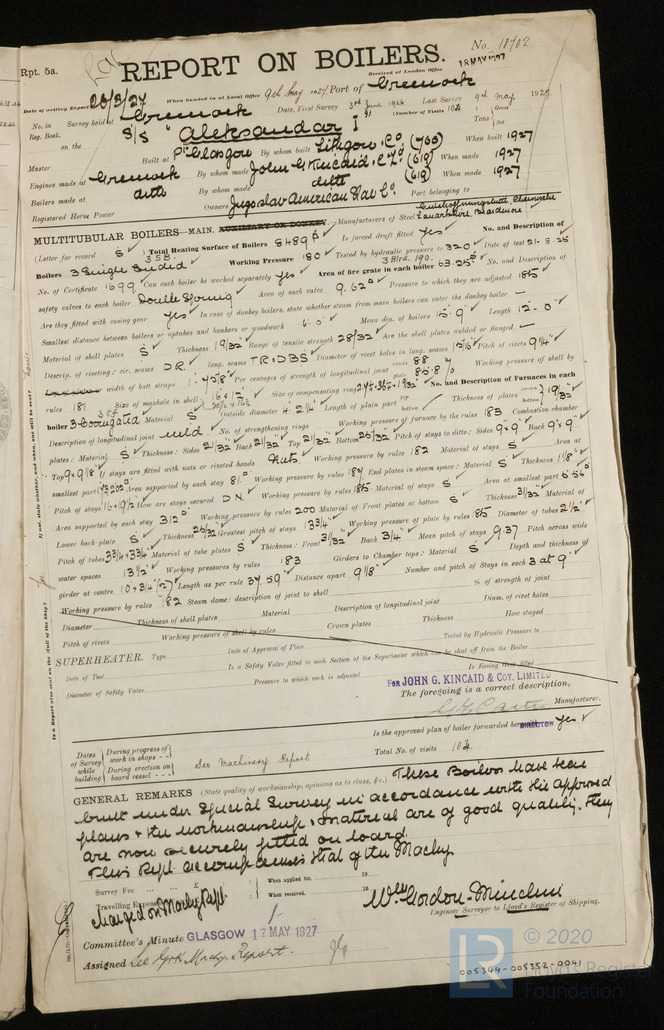 Rpt. 5a.
No. 18702
REPORT ON BOILERS.
Received at London Office 18 MAY 1927
Date of writing Report 20/3/27 When handed in at Local Office 9th May 1927 Port of Greenock
No. in Survey held at Greenock Date, First Survey 3rd June 1926 Last Survey 9th May 1927
Reg. Book. (Number of Visits 104)
on the S/S "Aleksandar I" Tons Gross Net
Master Built at Pt Glasgow By whom built Lithgow, Co. (788) When built 1927
Engines made at Greenock By whom made John G Kincaid, & Co Ld (619) When made 1927
Boilers made at ditto By whom made ditto (619) When made 1927
Registered Horse Power Owners Jugoslav American Nav Co. Port belonging to
MULTITUBULAR BOILERS—MAIN, AUXILIARY OR DONKEY. Manufacturers of Steel
(Letter for record S) Total Heating Surface of Boilers 8489 Is forced draft fitted Yes No. and Description of
Boilers 3 Single Ended Working Pressure 180 Tested by hydraulic pressure to 320 Date of test
No. of Certificate 1699 Can each boiler be worked separately yes Area of fire grate in each boiler 63.25 No. and Description of
safety valves to each boiler Double Spring Area of each valve 9.62 Pressure to which they are adjusted 185
Are they fitted with easing gear yes In case of donkey boilers, state whether steam from main boilers can enter the donkey boiler —
Smallest distance between boilers or uptakes and bunkers or woodwork Mean dia. of boilers 15'-9" Length 12'-0"
Material of shell plates S Thickness 1 9/32 Range of tensile strength 28/32 Are the shell plates welded or flanged —
Descrip. of riveting: cir. seams D.R. long. seams T.R.D.B.S Diameter of rivet holes in long. seams 1 5/16 Pitch of rivets 9 1/4
width of butt straps Per centages of strength of longitudinal joint rivets 88 plate 85.8 Working pressure of shell by
rules 181 Size of manhole in shell 16 x 12 Size of compensating ring No. and Description of Furnaces in each
boiler 3 Corrugated Material S Outside diameter Length of plain part top bottom Thickness of plates crown bottom 19/32
Description of longitudinal joint weld No. of strengthening rings Working pressure of furnace by the rules 183 Combustion chamber
plates: Material S Thickness: Sides 21/32 Back 21/32 Top 21/32 Bottom 25/32 Pitch of stays to ditto: Sides 9x9 Back 9x9
Top 9x9 1/8 If stays are fitted with nuts or riveted heads Nuts Working pressure by rules 182 Material of stays S Area at
smallest part Area supported by each stay 81 Working pressure by rules End plates in steam space: Material S Thickness 1 1/8
Pitch of stays How are stays secured D N Working pressure by rules 185 Material of stays S Area at smallest part
Area supported by each stay 312 Working pressure by rules 200 Material of Front plates at bottom S Thickness Material of
Lower back plate S Thickness 25/32 Greatest pitch of stays 13 3/4 Working pressure of plate by rules 185 Diameter of tubes 2 1/2
Pitch of tubes 3 3/4 x 3 3/4 Material of tube plates S Thickness: Front Back 3/4 Mean pitch of stays 9.37 Pitch across wide
water spaces 13 1/2 Working pressures by rules 183 Girders to Chamber tops: Material S Depth and thickness of
girder at centre 10 x 3/4 (2) Length as per rule 37.59 Distance apart 9 1/8 Number and pitch of Stays in each 3 at 9
Working pressure by rules 182 Steam dome: description of joint to shell % of strength of joint
Diameter Thickness of shell plates Material Description of longitudinal joint Diam. of rivet holes
Pitch of rivets Working pressure of shell by rules Crown plates Thickness How stayed
SUPERHEATER. Type Date of Approval of Plan Tested by Hydraulic Pressure to
Date of Test Is a Safety Valve fitted to each Section of the Superheater which can be shut off from the Boiler
Diameter of Safety Valve Pressure to which each is adjusted Is Easing Gear fitted
For JOHN G. KINCAID & COY. LIMITED
The foregoing is a correct description,
DIRECTOR Manufacturer.
Is the approved plan of boiler forwarded herewith yes
Dates of Survey while building During progress of work in shops - - During erection on board vessel - - - See Machinery Report Total No. of visits 104
GENERAL REMARKS (State quality of workmanship, opinions as to class, &c.) These Boilers have been
built under Special Survey in accordance with the approved
plans & the workmanship & material are of good quality. They
are now securely fitted on board.
This Rept. accompanies that of the Machy
Survey Fee ... £ When applied for, 19
Travelling Expenses When received, 19
Charged on Machy Rept.
Wm Gordon-Minchin
Engineer Surveyor to Lloyd's Register of Shipping.
Committee's Minute GLASGOW 17 MAY 1927
Assigned See Grk. Machy. Report.
LR © 2020
Lloyd's Register
Foundation
005344-005352-0041